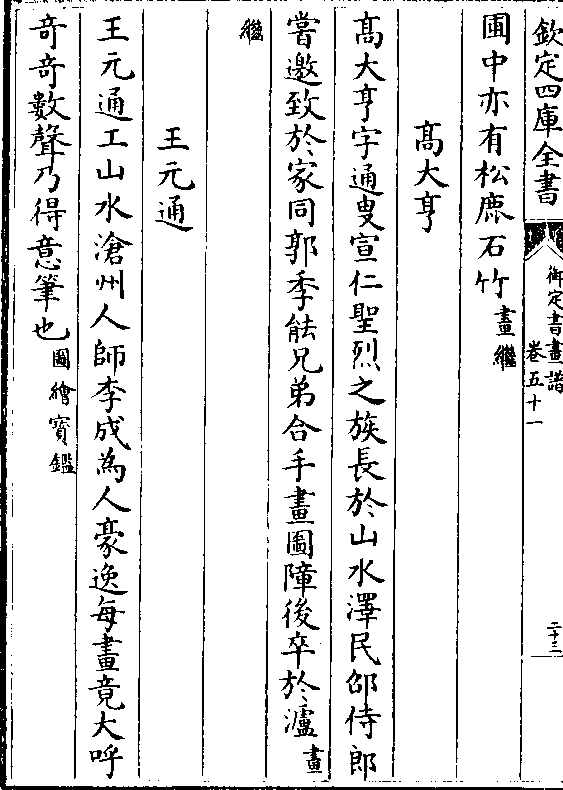 欽定四庫全書
御定書畫譜
卷五十一
二十三
圃中亦有松鹿石竹畫繼
高大亨
髙大亨字通叟宣仁聖烈之族長於山水澤民邵侍郎
嘗邀致於家同郭季能兄弟合手畫圖障後卒於瀘畫
繼
王元通
王元通工山水滄州人師李成為人豪逸每畫竟大呼
竒竒數聲乃得意筆也圖繪寳鑑